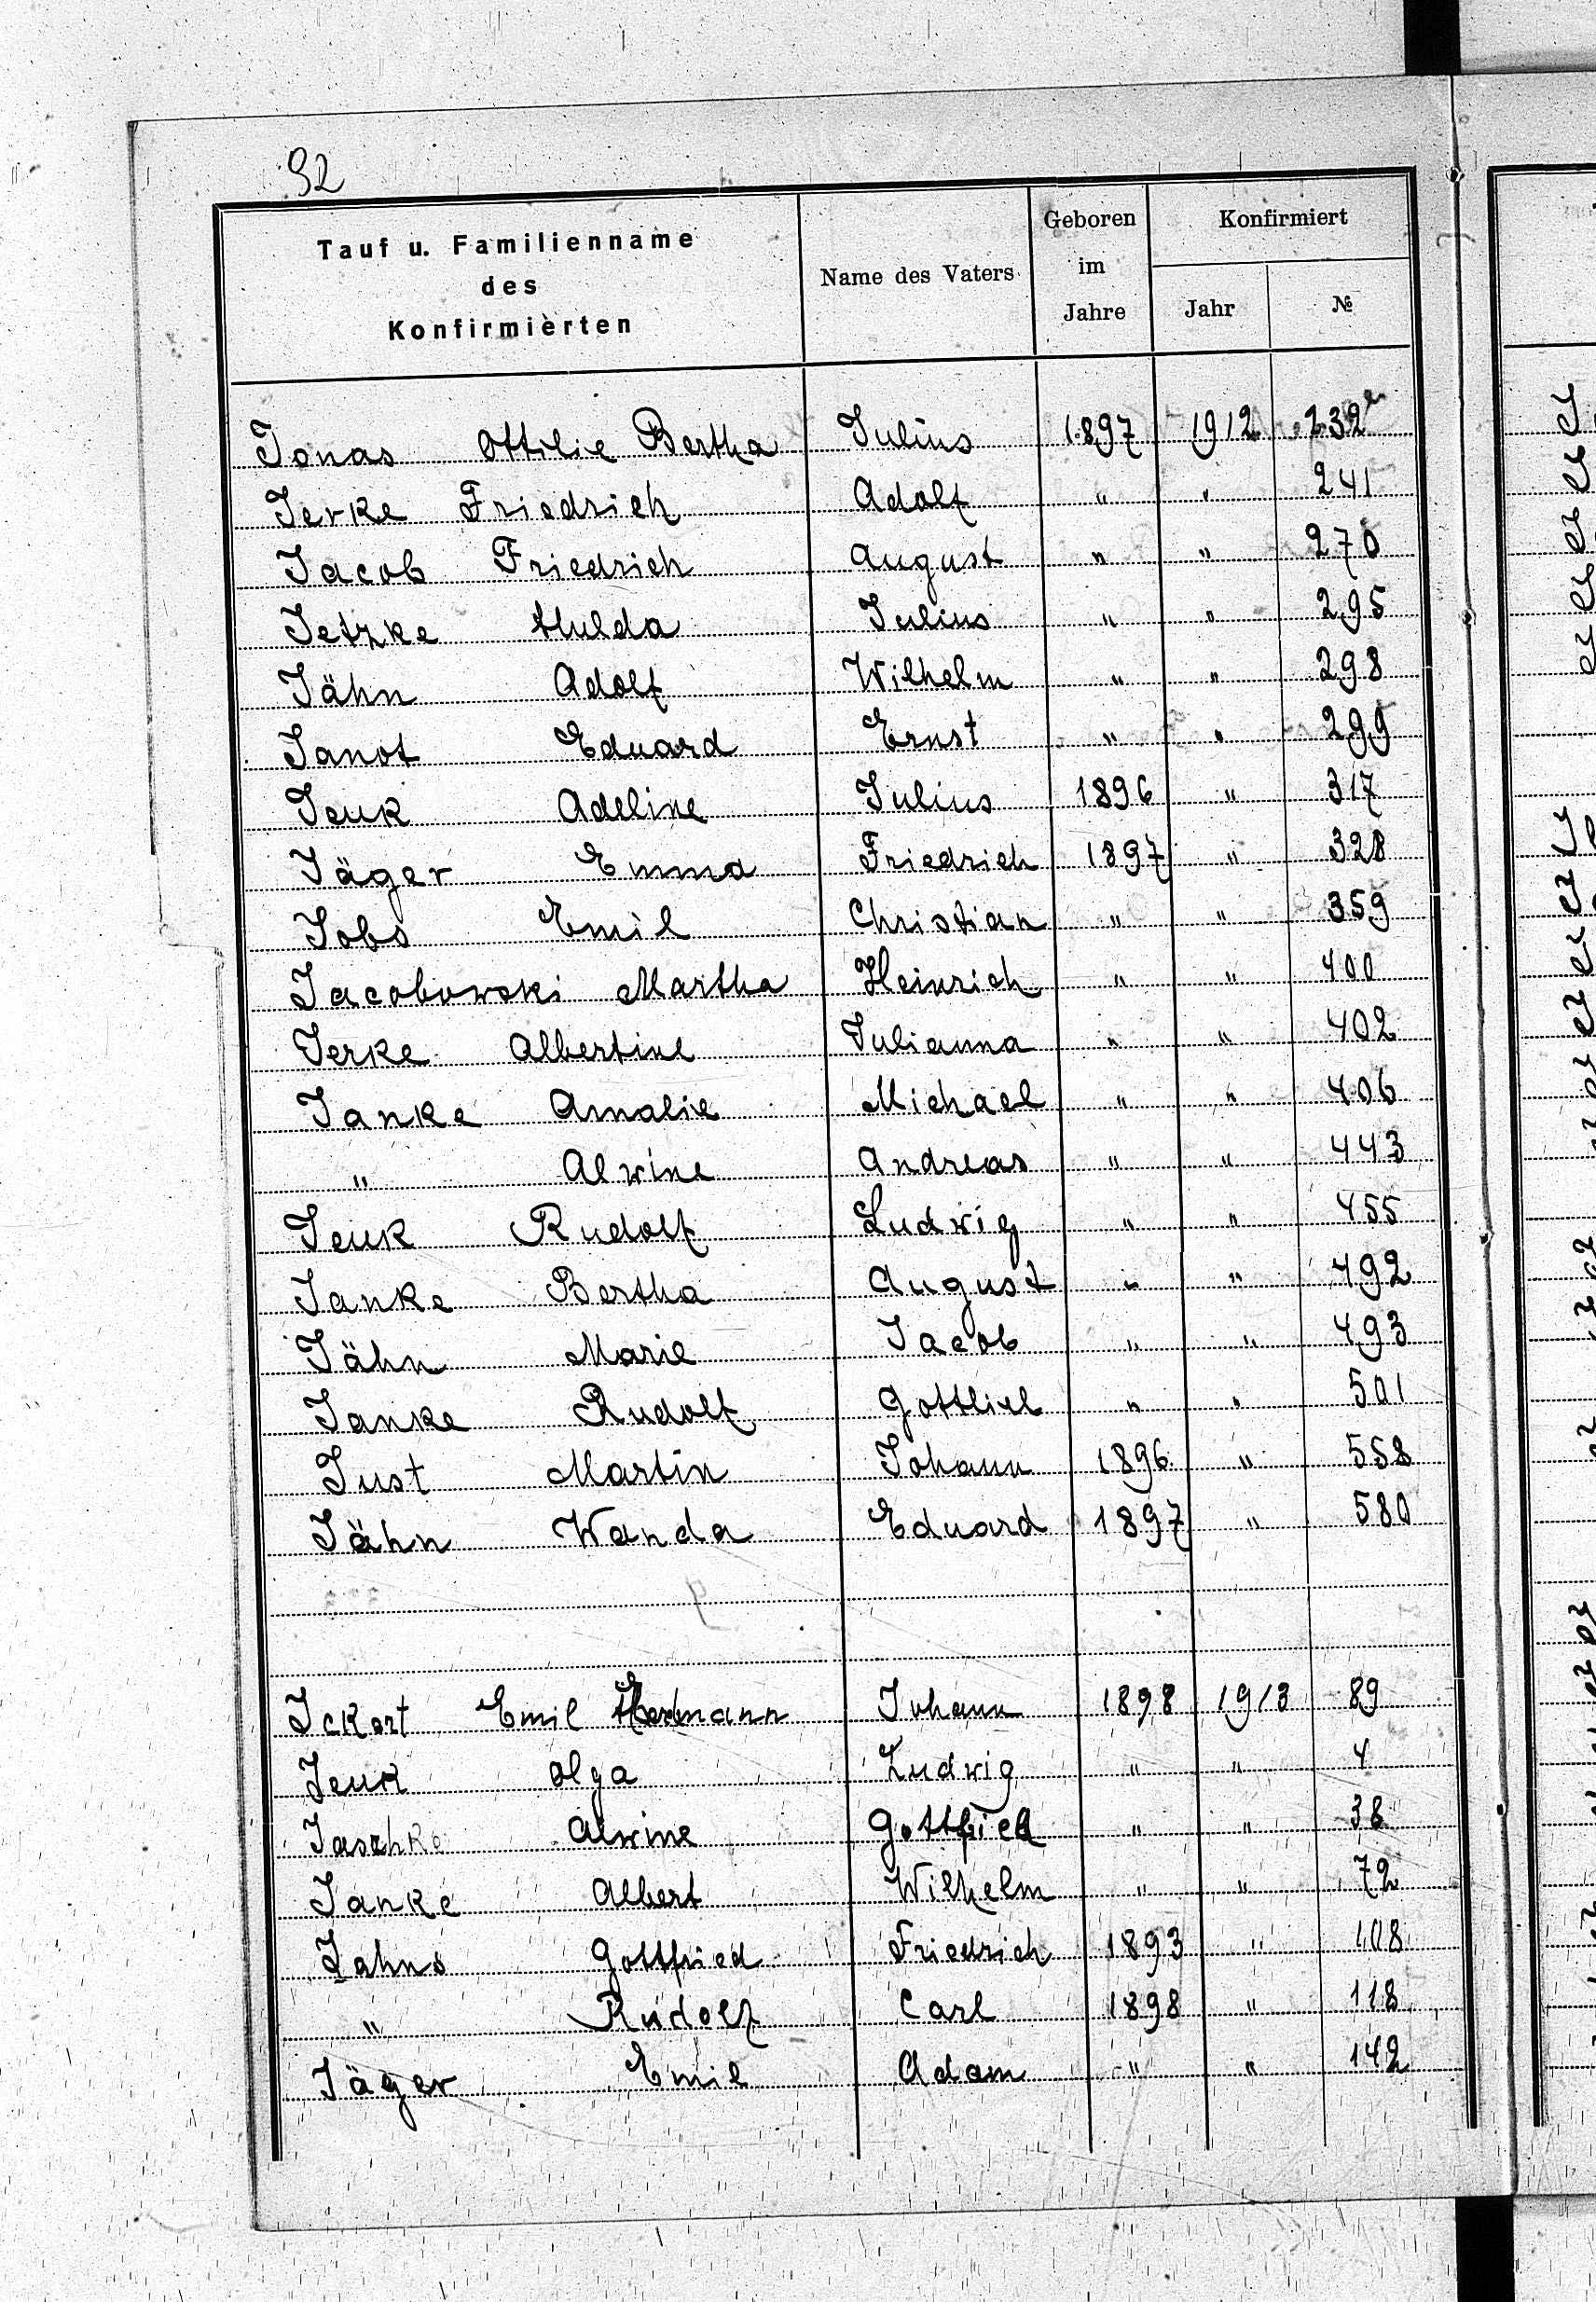 92
Tauf u. Familienname
des
Konfirmierten
Name des Vaters
Geboren
im
Jahre
Konfirmiert
Jahr
№
Jonas Ottilie Bertha Julius 1897 1912 232
Jerke Friedrich Adolf " " 241
Jacob Friedrich August " " 270
Jetzke Hulda Julius " " 295
Jähn Adolf Wilhelm " " 298
Janot Eduard Ernst " " 299
Jeuk Adeline Julius 1896 " 317
Jäger Emma Friedrich 1897 " 328
Jobs Emil Christian " " 359
Jacobowski Martha Heinrich " " 400
Jerke Albertine Julianna " " 402
Janke Amalie Michael " " 406
" Alwine Andreas " " 443
Jeuk Rudolf Ludwig " " 455
Janke Bertha August " " 492
Jähn Marie Jacob " " 493
Janke Rudolf Gottlieb " " 501
Just Martin Johann 1896 " 558
Jähn Wanda Eduard 1897 " 580
Ickert Emil Hermann Johann 1898 1913 89
Jeuk Olga Ludwig " " 4
Jaschke Alwine Gottfried " " 38
Janke Albert Wilhelm " " 72
Jahns Gottfried Friedrich 1893 " 108
" Rudolf Carl 1898 " 118
Jäger Emil Adam " " 142